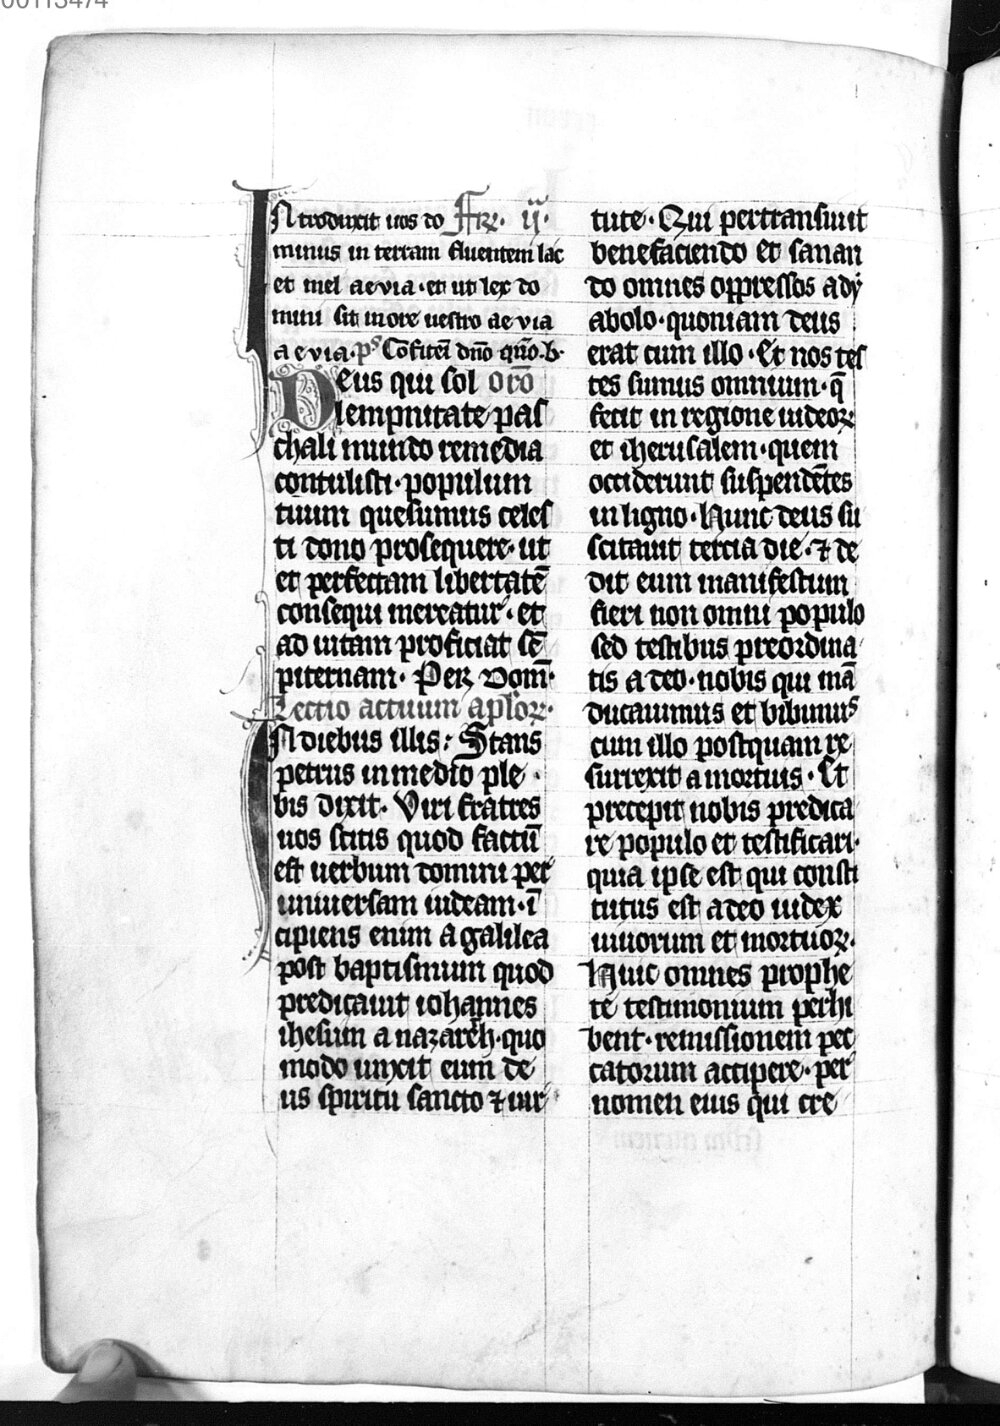 INtroduxit uos do Fr̄. ij.
minus in terram fluentem lac
et mel aeuia. et ut lex do
mini sit in ore uestro aeuia
aeuia. ps Cōfitem̄ dn̄o qn̄o. b.
Deus qui sol oro
lempnitate pas
chali mundo remedia
contulisti. populum
tuum quesumus celes
ti dono prosequere. ut
et perfectam libertatē
consequi mereatur. et
ad uitam proficiat sē
piternam. Per Dom̄.
Lectio actuum aplōꝝ.
IN diebus illis: Stans
petrus in medio ple
bis dixit. Viri fratres
uos scitis quod factū
est uerbum domini per
uniuersam iudeam. ī
cipiens enim a galilea
post baptismum quod
predicauit iohannes
ihesum a nazareth. quo
modo unxit eum de
us spiritu sancto ⁊ uir
tute. Qui pertransiuit
benefaciendo et sanan
do omnes oppressos a dy
abolo. quoniam deus
erat cum illo. Et nos tes
tes sumus omnium. q̄
fecit in regione iudeoꝝ
et iherusalem. quem
occiderunt suspendētes
in ligno. Hunc deus su
scitauit tercia die. ⁊ de
dit eum manifestum
fieri non omni populo
sed testibus preordina
tis a deo. nobis qui mā
ducauimus et bibimus
cum illo postquam re
surrexit a mortuis. Et
precepit nobis predica
re populo et testificari.
quia ipse est qui consti
tutus est a deo iudex
uiuorum et mortuoꝝ.
Huic omnes prophe
te testimonium perhi
bent. remissionem pec
catorum accipere. per
nomen eius qui cre